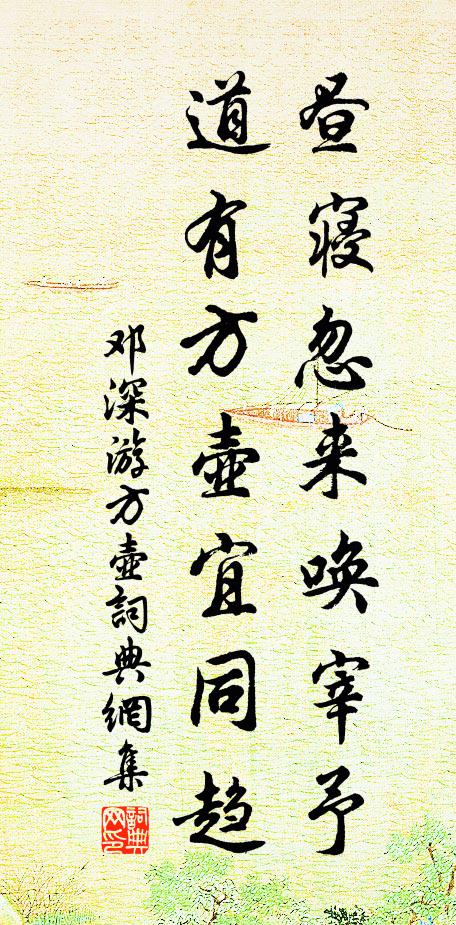 昼寝忽来唤宰予
道有方壶宜同趋
邓深游方壶詞典網集
詞典
网印